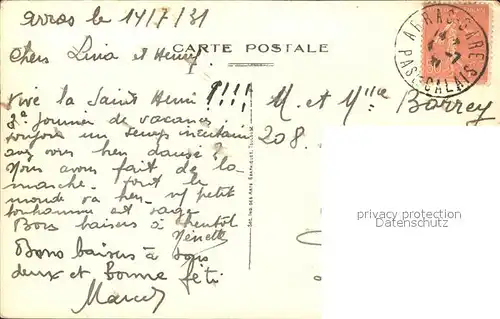 Arras le 14/7/31
CARTE POSTALE
Chers Lina et Henri,
Vive la Saint Henri !!!!
3e journée de vacances.
toujours un temps incertain
avez vous bien dansé ?
Nous avons fait de la
marche. tout le
monde va bien. petit
bonhomme est sage
Bons baisers à bientôt
Nénette
Bons baisers à vous
deux et bonne fête
Marcel
M. et Mlle Borrey
208.
ARRAS-GARE
PAS-DE-CALAIS
privacy protection
Datenschutz